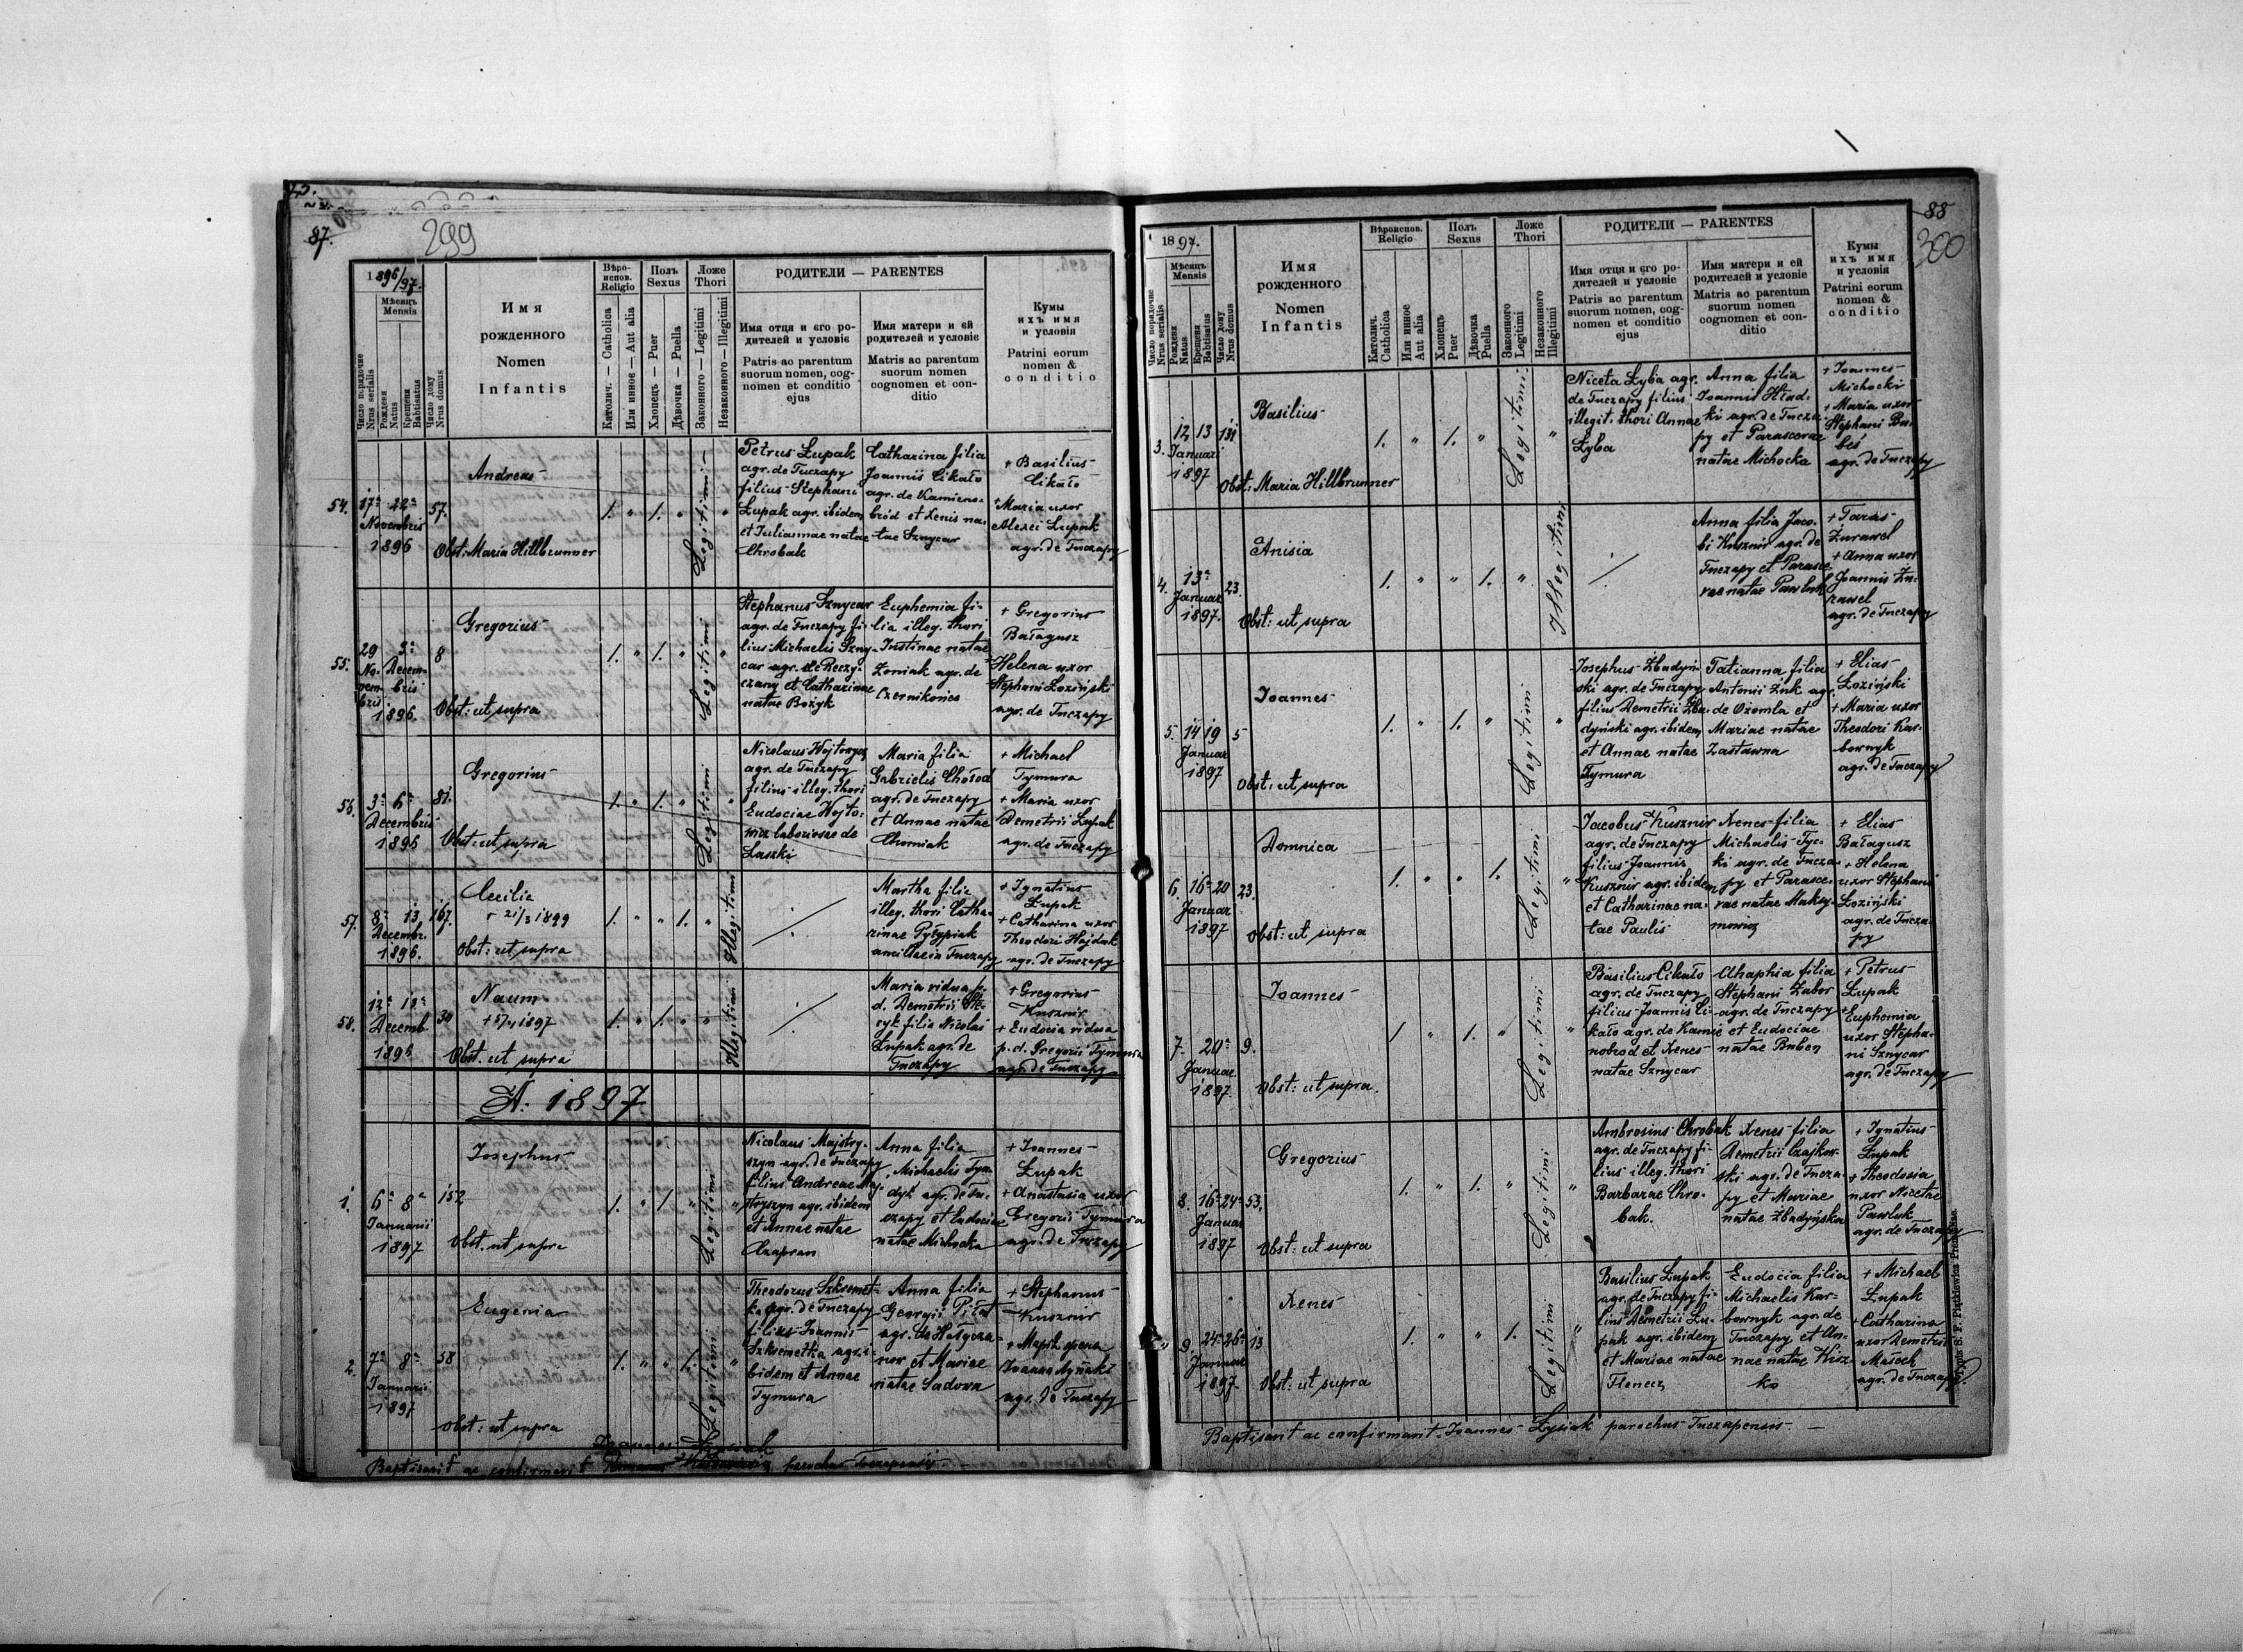 87.
299
1896/97.
Мѣсяць
Mensis
Число порядочне
Nrus serialis
Рождения
Natus
Крещеня
Babtisatus
Число дому
Nrus domus
Имя
рожденного
Nomen
Infantis
Вѣро-
испов.
Religio
Католич. — Catholica
Или инноє — Aut alia
Полъ
Sexus
Хлопець — Puer
Дѣвочка — Puella
Ложе
Thori
Законного — Legitimi
Незаконного — Illegitimi
РОДИТЕЛИ — PARENTES
Имя отця и єго ро-
дителей и условіє
Patris ac parentum
suorum nomen, cog-
nomen et conditio
ejus
Имя матери и єй
родителей и условіє
Matris ac parentum
suorum nomen
cognomen et con-
ditio
Кумы
ихъ имя
и условія
Patrini eorum
nomen &
conditio
54.
17ª 22ª
Novembris
1896
57.
Andreas
Obst: Maria Hillbrunner
1. " 1. "
Legitimi
"
Petrus Łupak
agr. de Tuczapy
filius Stephani
Łupak agr. ibidem
et Juliannae natae
Chrobak
Catharina filia
Joannis Cikało
agr. de Kamieno-
bród et Xenis na-
tae Sznycar
+ Basilius
Cikało
+ Maria uxor
Alexei Łupak
agr. de Tuczapy
55.
29 3ª
No- Decem-
vem- bris
bris
1896.
8
Gregorius
Obst: ut supra
1. " 1. "
Legitimi
"
Stephanus Sznycar
agr. de Tuczapy fi-
lius Michaelis Szny-
car agr. de Reczy-
czany et Catharinae
natae Bożyk
Euphemia fi-
lia illeg. thori
Justinae natae
Zoniak agr. de
Czernikonice
+ Gregorius
Bałagusz
+ Helena uxor
Stephani Łoziński
agr. de Tuczapy
56.
3ª 6ª
Decembris
1896
81.
Gregorius
Obst: ut supra
1. " 1. "
Legitimi
"
Nicolaus Wojtowycz
agr. de Tuczapy
filius illeg. thori
Eudociae Wojto-
wicz laboriosae de
Laszki
Maria filia
Gabrielis Chołod
agr. de Tuczapy
et Annae natae
Chomiak
+ Michael
Tymura
+ Maria uxor
Demetrii Łupak
agr. de Tuczapy
57.
8ª 13
Decembr.
1896.
167.
Cecilia
+ 21/3 1899
Obst: ut supra
1. " " 1. "
Illegitimi
Martha filia
illeg. thori Catha-
rinae Pyłypiak
ancilla in Tuczapy
+ Ignatius
Łupak
+ Catharina uxor
Theodori Hajduk
agr. de Tuczapy
58.
12ª 13ª
Decemb.
1896
30
Naum
Obst. ut supra
1. " 1. " "
Illegitimi
Maria vidua p.
d. Demetrii Ste-
cyk filia Nicolai
Łupak agr. de
Tuczapy
+ Gregorius
Kusznir
+ Eudocia vidua
p. d. Gregorii Tymura
agr. de Tuczapy
A. 1897
1.
6ª 8ª
Januarii
1897
152
Josephus
Obst. ut supra
1. " 1. "
Legitimi
"
Nicolaus Majstry-
szyn agr. de Tuczapy
filius Andreae Maj-
stryszyn agr. ibidem
et Annae natae
Czapran
Anna filia
Michaelis Tym-
dyk agr. de Tu-
czapy et Eudociae
natae Michocka
+ Joannes
Łupak
+ Anastasia uxor
Gregorii Tymura
agr. de Tuczapy
2.
7ª 8ª
Januarii
1897
58
Eugenia
Obst: ut supra
1. " " 1.
Legitimi
"
Theodorus Szkremet-
ka agr. de Tuczapy
filius Joannis
Szkremetka agr. i-
bidem et Annae
Tymura
Anna filia
Georgii Piłat
agr. de
et Mariae
natae Sadowa
+ Stephanus
Kusznir
agr. de Tuczapy
Joannes Łysiak
Baptisavit ac confirmavit parochus Tuczapensis
88
300
1897.
Мѣсяць
Mensis
Число порядочне
Nrus serialis
Рожденя
Natus
Крещеня
Babtisatus
Число дому
Nrus domus
Имя
рожденного
Nomen
Infantis
Вѣроиспов.
Religio
Католич.
Catholica
Или инноє
Aut alia
Полъ
Sexus
Хлопець
Puer
Дѣвочка
Puella
Ложе
Thori
Законного
Legitimi
Незаконного
Illegitimi
РОДИТЕЛИ — PARENTES
Имя отця и єго ро-
дителей и условіє
Patris ac parentum
suorum nomen, cog-
nomen et conditio
ejus
Имя матери и єй
родителей и условіє
Matris ac parentum
suorum nomen
cognomen et con-
ditio
Кумы
ихъ имя
и условія
Patrini eorum
nomen &
conditio
3.
12 13
Januar
1897
131
Basilius
Obst: Maria Hillbrunner
1. " 1. "
Legitimi
"
Niceta Łyba agr.
de Tuczapy filius
illegit. thori Annae
Łyba
Anna filia
Joannis Hład-
ki agr. de Tucza-
py et Parascevae
natae Michocka
+ Joannes
Michocki
+ Maria uxor
Stephani Ba-
beś
agr. de Tuczapy
4.
13ª
Januar
1897.
23.
Anisia
Obst: ut supra
1. " " 1. "
Illegitimi
Anna filia Jaco-
bi Kusznir agr. de
Tuczapy et Parasce-
vae natae Pawluk
+ Taras
Żurawel
+ Anna uxor
Joannis Żu-
rawel
agr. de Tuczapy
5.
14 19
Januar
1897
5
Joannes
Obst: ut supra
1. " 1. "
Legitimi
"
Josephus Zbadyń-
ski agr. de Tuczapy
filius Demetrii Zba-
dyński agr. ibidem
et Annae natae
Tymura
Tatianna filia
Antonii Żuk agr.
de Ożomla et
Mariae natae
Zastawna
+ Elias
Łoziński
+ Maria uxor
Theodori Kar-
bownyk
agr. de Tuczapy
6.
16ª 20
Januar
1897
23.
Domnica
Obst: ut supra
1. " " 1.
Legitimi
"
Jacobus Kusznir
agr. de Tuczapy
filius Joannis
Kusznir agr. ibidem
et Catharinae na-
tae Paulis
Xenes filia
Michaelis Tyc-
ki agr. de Tucza-
py et Parasce-
vae natae Maksy-
mowicz
+ Elias
Bałagusz
+ Helena
uxor Stephani
Łoziński
agr. de Tucza-
py
7.
20ª
Januar.
1897.
9.
Joannes
Obst: ut supra.
1. " 1. "
Legitimi
"
Basilius Cikało
agr. de Tuczapy
filius Joannis Ci-
kało agr. de Kamie-
nobrod et Xenes
natae Sznycar
Ahaphia filia
Stephani Zabor
agr. de Tuczapy
et Eudociae
natae Buben
+ Petrus
Łupak
+ Euphemia
uxor Stepha-
ni Sznycar
agr. de Tuczapy
8.
16ª 24ª
Januar
1897
53.
Gregorius
Obst: ut supra
1. " 1. "
Legitimi
"
Ambrosius Chrobak
agr. de Tuczapy fi-
lius illeg. thori
Barbarae Chro-
bak.
Xenes filia
Demetrii Czajkow-
ski agr. de Tucza-
py et Mariae
natae Zbadyńska
+ Ignatius
Łupak
+ Theodosia
uxor Nicetae
Pawluk
agr. de Tuczapy
9.
24ª 26ª
Januar
1897
13
Xenes
Obst: ut supra
1. " " 1.
Legitimi
"
Basilius Łupak
agr. de Tuczapy fi-
lius Demetrii Łu-
pak agr. ibidem
et Mariae natae
Henecz
Eudocia filia
Michaelis Kar-
bownyk agr. de
Tuczapy et An-
nae natae Kisz-
ko
+ Michael
Łupak
+ Catharina
uxor Demetrii
Małoch
agr. de Tuczapy
Baptisavit ac confirmavit Joannes Łysiak parochus Tuczapensis
Typis S. F. Piątkiewicz Premisliae.